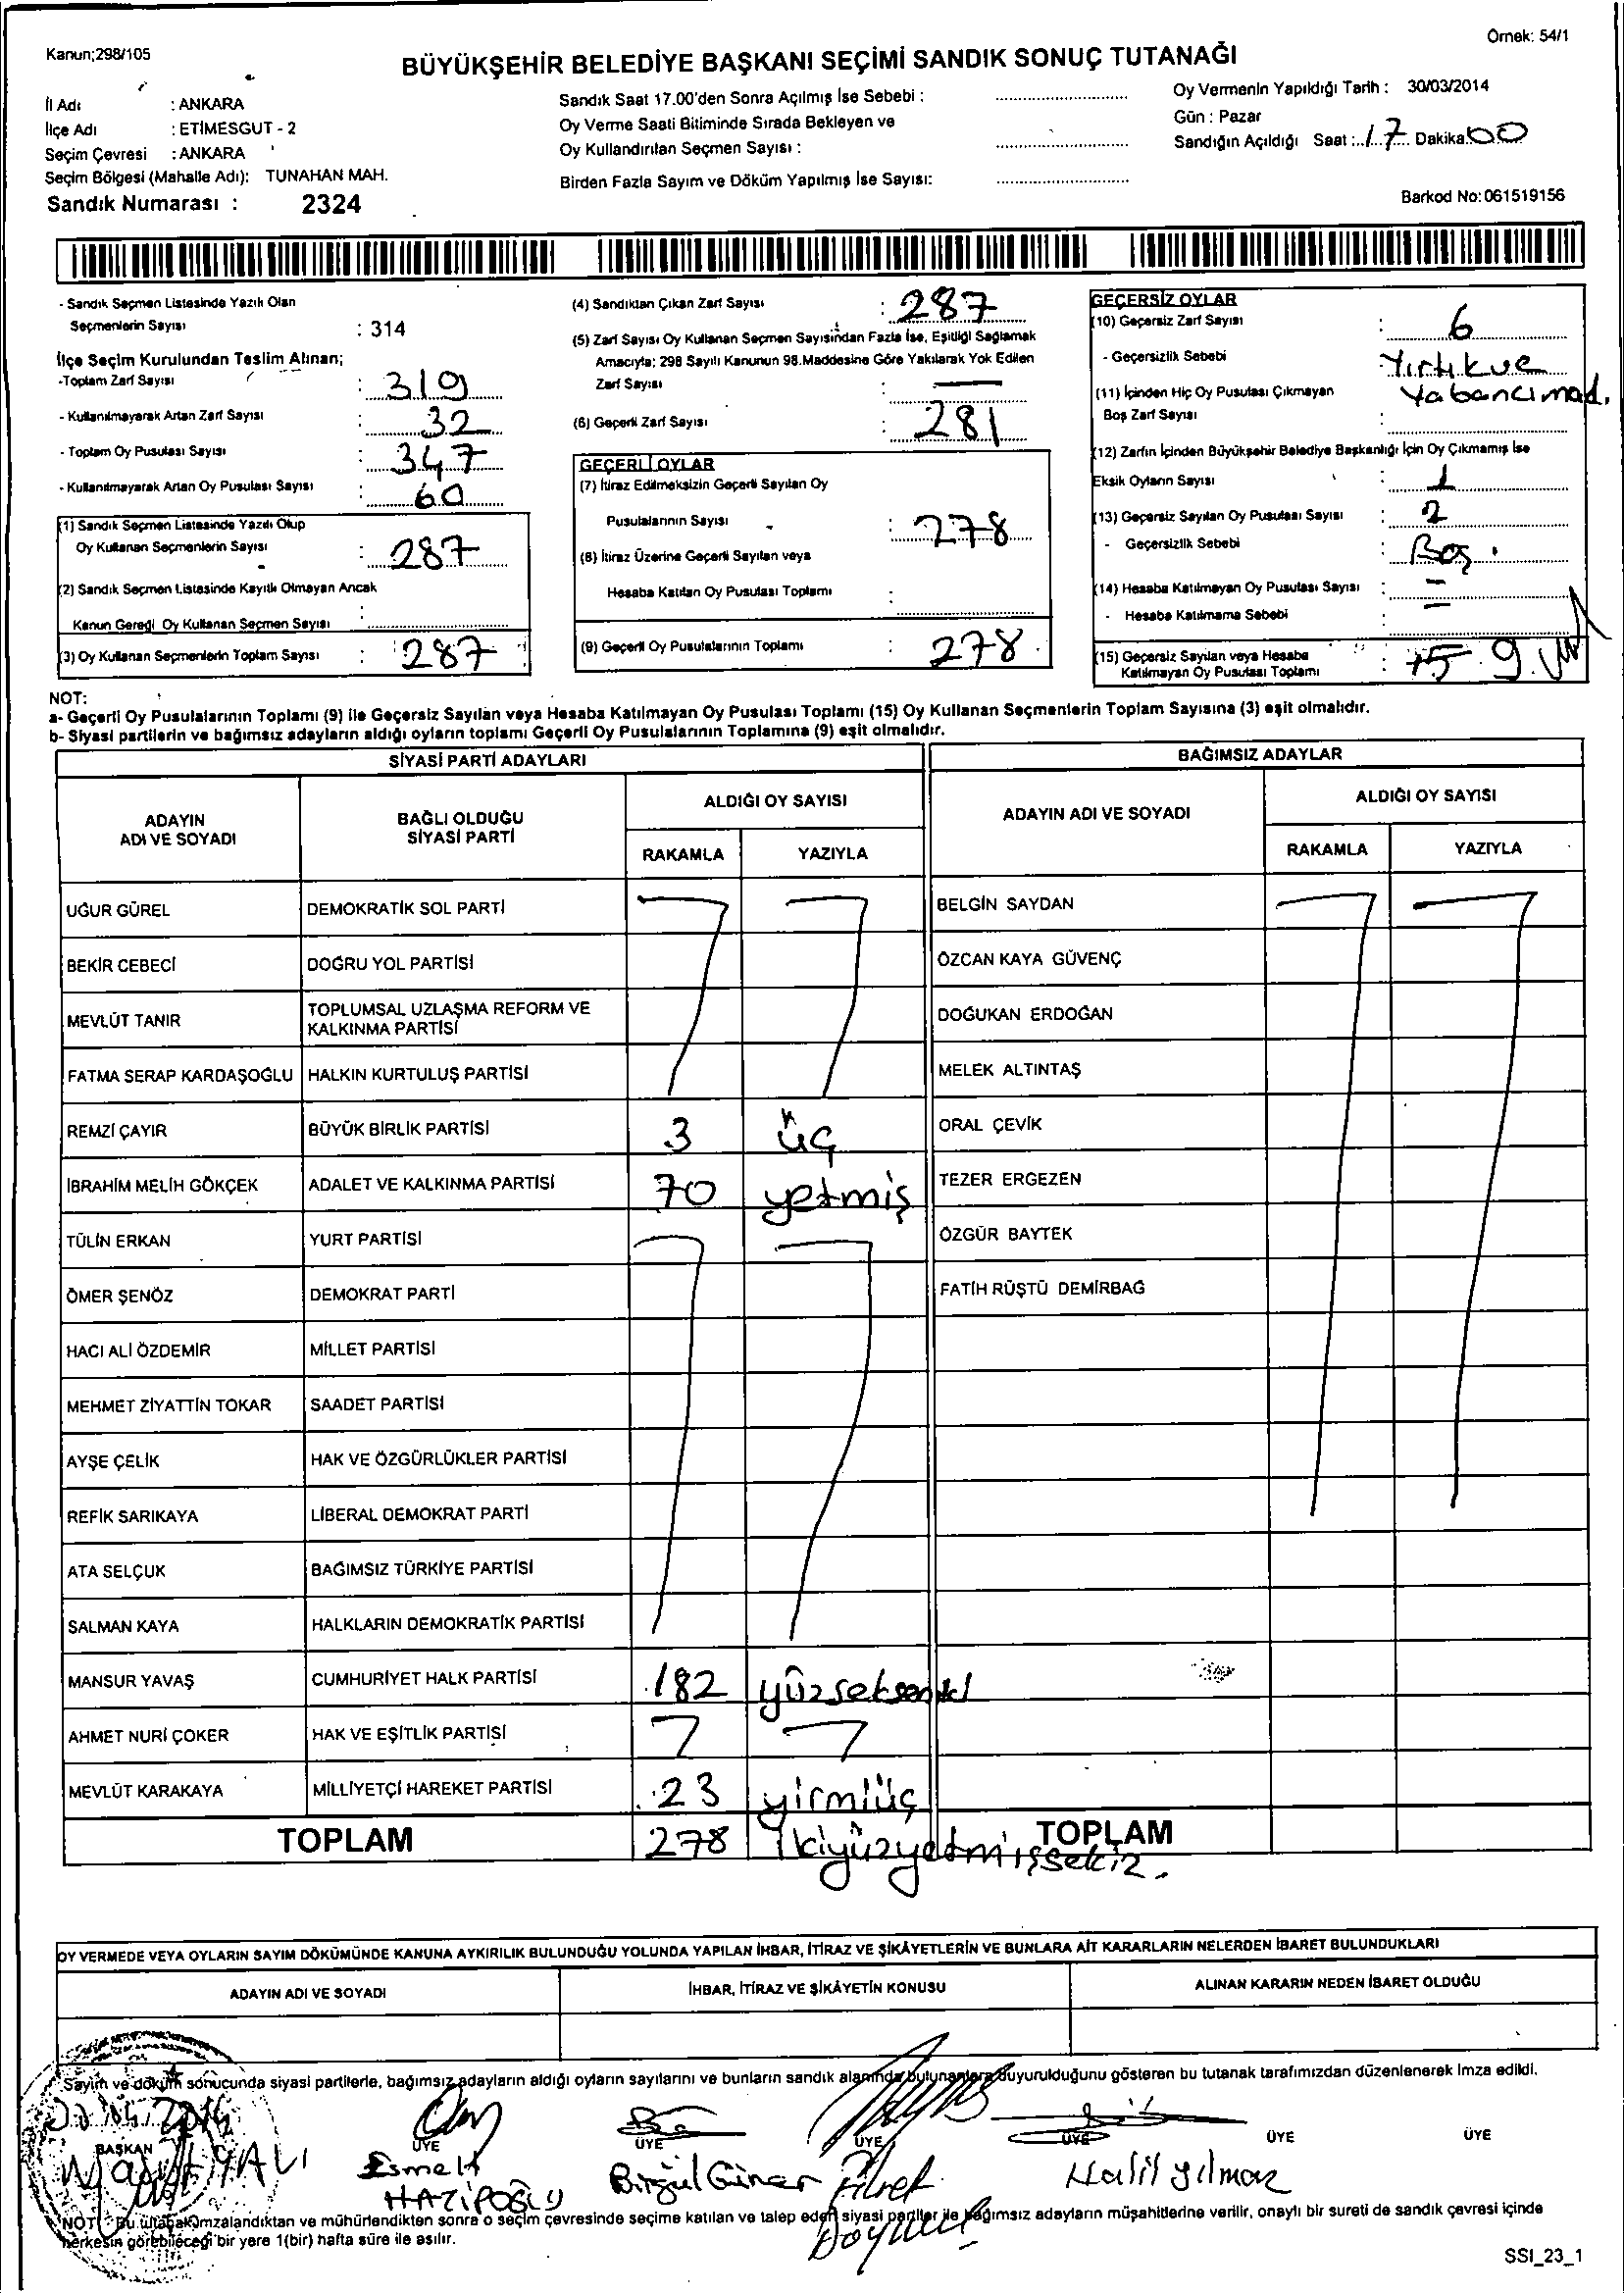 Kanun;298/105
Örnek: 54/1
BÜYÜKŞEHİR BELEDİYE BAŞKANI SEÇİMİ SANDIK SONUÇ TUTANAĞI
İl Adı : ANKARA
İlçe Adı : ETİMESGUT - 2
Seçim Çevresi : ANKARA
Seçim Bölgesi (Mahalle Adı): TUNAHAN MAH.
Sandık Numarası : 2324
Sandık Saat 17.00'den Sonra Açılmış İse Sebebi :
Oy Verme Saati Bitiminde Sırada Bekleyen ve
Oy Kullandırılan Seçmen Sayısı :
Birden Fazla Sayım ve Döküm Yapılmış İse Sayısı:
Oy Vermenin Yapıldığı Tarih : 30/03/2014
Gün : Pazar
Sandığın Açıldığı Saat : 17 Dakika: 00
Barkod No: 061519156
- Sandık Seçmen Listesinde Yazılı Olan
Seçmenlerin Sayısı : 314
İlçe Seçim Kurulundan Teslim Alınan;
-Toplam Zarf Sayısı : 319
- Kullanılmayarak Artan Zarf Sayısı : 32
- Toplam Oy Pusulası Sayısı : 347
- Kullanılmayarak Artan Oy Pusulası Sayısı : 60
(1) Sandık Seçmen Listesinde Yazılı Olup
Oy Kullanan Seçmenlerin Sayısı : 287
(2) Sandık Seçmen Listesinde Kayıtlı Olmayan Ancak
Kanun Gereği Oy Kullanan Seçmen Sayısı :
(3) Oy Kullanan Seçmenlerin Toplam Sayısı : 287
(4) Sandıktan Çıkan Zarf Sayısı : 287
(5) Zarf Sayısı Oy Kullanan Seçmen Sayısından Fazla İse, Eşitliği Sağlamak
Amacıyla; 298 Sayılı Kanunun 98.Maddesine Göre Yakılarak Yok Edilen
Zarf Sayısı : —
(6) Geçerli Zarf Sayısı : 281
GEÇERLİ OYLAR
(7) İtiraz Edilmeksizin Geçerli Sayılan Oy
Pusulalarının Sayısı : 278
(8) İtiraz Üzerine Geçerli Sayılan veya
Hesaba Katılan Oy Pusulası Toplamı :
(9) Geçerli Oy Pusulalarının Toplamı : 278
GEÇERSİZ OYLAR
(10) Geçersiz Zarf Sayısı : 6
- Geçersizlik Sebebi : Yırtık ve
Yabancı mad.
(11) İçinden Hiç Oy Pusulası Çıkmayan
Boş Zarf Sayısı :
(12) Zarfın İçinden Büyükşehir Belediye Başkanlığı İçin Oy Çıkmamış İse
Eksik Oyların Sayısı : 1
(13) Geçersiz Sayılan Oy Pusulası Sayısı : 2
- Geçersizlik Sebebi : Boş.
(14) Hesaba Katılmayan Oy Pusulası Sayısı : —
- Hesaba Katılmama Sebebi : —
(15) Geçersiz Sayılan veya Hesaba
Katılmayan Oy Pusulası Toplamı : 9
NOT:
a- Geçerli Oy Pusulalarının Toplamı (9) ile Geçersiz Sayılan veya Hesaba Katılmayan Oy Pusulası Toplamı (15) Oy Kullanan Seçmenlerin Toplam Sayısına (3) eşit olmalıdır.
b- Siyasi partilerin ve bağımsız adayların aldığı oyların toplamı Geçerli Oy Pusulalarının Toplamına (9) eşit olmalıdır.
SİYASİ PARTİ ADAYLARI
ADAYIN
ADI VE SOYADI
BAĞLI OLDUĞU
SİYASİ PARTİ
ALDIĞI OY SAYISI
RAKAMLA YAZIYLA
UĞUR GÜREL DEMOKRATİK SOL PARTİ
BEKİR CEBECİ DOĞRU YOL PARTİSİ
MEVLÜT TANIR TOPLUMSAL UZLAŞMA REFORM VE
KALKINMA PARTİSİ
FATMA SERAP KARDAŞOĞLU HALKIN KURTULUŞ PARTİSİ
REMZİ ÇAYIR BÜYÜK BİRLİK PARTİSİ 3 üç
İBRAHİM MELİH GÖKÇEK ADALET VE KALKINMA PARTİSİ 70 yetmiş
TÜLİN ERKAN YURT PARTİSİ
ÖMER ŞENÖZ DEMOKRAT PARTİ
HACI ALİ ÖZDEMİR MİLLET PARTİSİ
MEHMET ZİYATTİN TOKAR SAADET PARTİSİ
AYŞE ÇELİK HAK VE ÖZGÜRLÜKLER PARTİSİ
REFİK SARIKAYA LİBERAL DEMOKRAT PARTİ
ATA SELÇUK BAĞIMSIZ TÜRKİYE PARTİSİ
SALMAN KAYA HALKLARIN DEMOKRATİK PARTİSİ
MANSUR YAVAŞ CUMHURİYET HALK PARTİSİ 182 yüzsekseniki
AHMET NURİ ÇOKER HAK VE EŞİTLİK PARTİSİ
MEVLÜT KARAKAYA MİLLİYETÇİ HAREKET PARTİSİ 23 yirmiüç
TOPLAM 278 ikiyüzyetmişsekiz.
BAĞIMSIZ ADAYLAR
ADAYIN ADI VE SOYADI
ALDIĞI OY SAYISI
RAKAMLA YAZIYLA
BELGİN SAYDAN
ÖZCAN KAYA GÜVENÇ
DOĞUKAN ERDOĞAN
MELEK ALTINTAŞ
ORAL ÇEVİK
TEZER ERGEZEN
ÖZGÜR BAYTEK
FATİH RÜŞTÜ DEMİRBAĞ
TOPLAM
OY VERMEDE VEYA OYLARIN SAYIM DÖKÜMÜNDE KANUNA AYKIRILIK BULUNDUĞU YOLUNDA YAPILAN İHBAR, İTİRAZ VE ŞİKÂYETLERİN VE BUNLARA AİT KARARLARIN NELERDEN İBARET BULUNDUKLARI
ADAYIN ADI VE SOYADI
İHBAR, İTİRAZ VE ŞİKÂYETİN KONUSU
ALINAN KARARIN NEDEN İBARET OLDUĞU
Sayım ve döküm sonucunda siyasi partilerle, bağımsız adayların aldığı oyların sayılarını ve bunların sandık alanında bulunanlara duyurulduğunu gösteren bu tutanak tarafımızdan düzenlenerek imza edildi.
BAŞKAN ÜYE ÜYE ÜYE ÜYE ÜYE ÜYE
HATİPOĞLU Birgül Güner Halil Yılmaz
NOT: Bu tutanak imzalandıktan ve mühürlendikten sonra o seçim çevresinde seçime katılan ve talep eden siyasi partiler ile bağımsız adayların müşahitlerine verilir, onaylı bir sureti de sandık çevresi içinde
herkesin görebileceği bir yere 1(bir) hafta süre ile asılır.
SSI_23_1